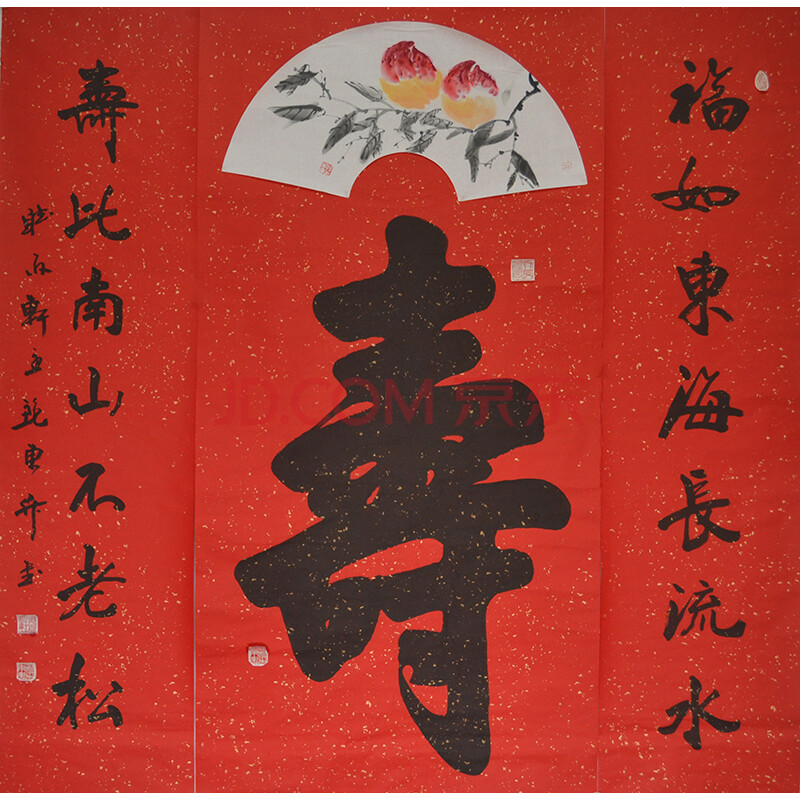 福如東海長流水
壽
壽比南山不老松
JD.COM 京东